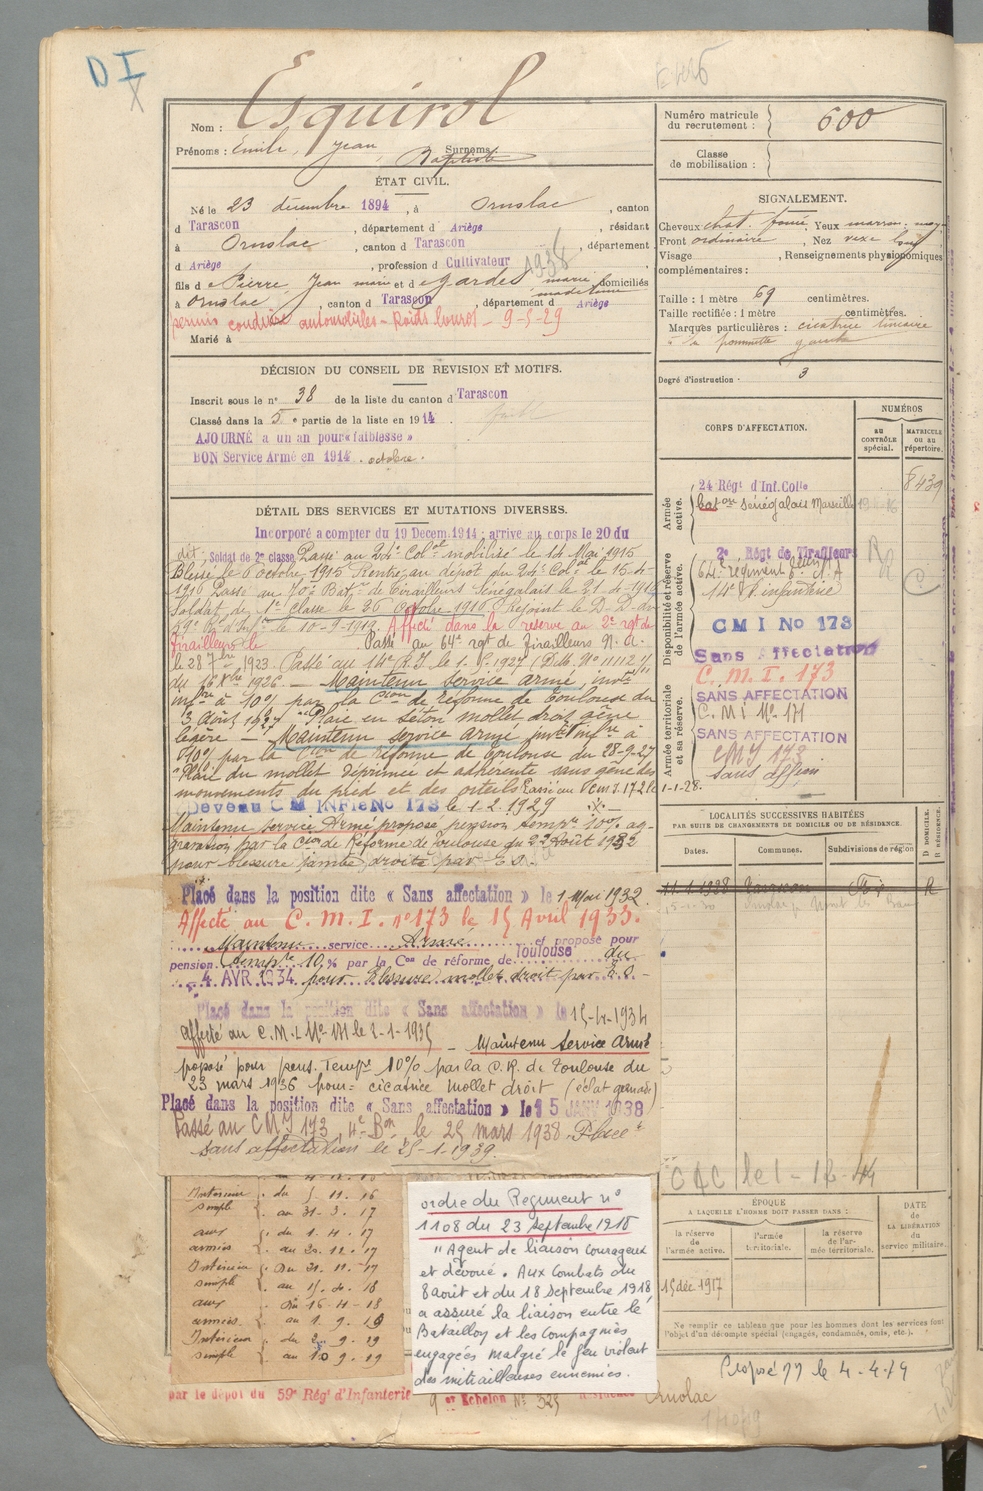 D I
Nom : Esquirol
Prénoms : Emile, Jean, Baptiste Surnoms :
ÉTAT CIVIL.
Né le 23 décembre 1894, à Ornolac, canton
d Tarascon, département d Ariège, résidant
à Ornolac, canton d Tarascon, département
d Ariège, profession d Cultivateur 1938
fils d e Pierre, Jean marie et d e Gardes marie madeleine domiciliés
à Ornolac, canton d Tarascon, département d Ariège
permis conduire automobiles - Poids lourds - 9-5-29
Marié à
DÉCISION DU CONSEIL DE REVISION ET MOTIFS.
Inscrit sous le nº 38 de la liste du canton d Tarascon
Classé dans la 5 e partie de la liste en 1914.
AJOURNÉ a un an pour « faiblesse »
BON Service Armé en 1914. octobre.
DÉTAIL DES SERVICES ET MUTATIONS DIVERSES.
Incorporé a compter du 19 Decem. 1914 ; arrivé au corps le 20 du
dit, Soldat de 2e classe, Passé au 24e Col. mobilisé le 14 Mai 1915
Blessé le 6 octobre 1915 Rentré au dépot du 24e Col. le 15-4-
1916 Passé au 70e Bat. de Tirailleurs Sénégalais le 21-4-1916
Soldat de 1e classe le 30 octobre 1916 Rejoint le D.D. du
59e R. d'Inf. le 10-9-1919. Affecté dans la reserve au 2e rgt de
Tirailleurs le Passé au 64e rgt de Tirailleurs N. A.
le 28 1923. Passé au 14e R.I. le 1. 1927 (Déb. Nº 11112
du 16 1926. - Maintenu service armé, inv.
inf. à 10% par la Cion de Réforme de Toulouse du
3 Août 1927 "Plaie en séton mollet droit gêne
légère - Maintenu service armé inv. inf. à
10% par la Cion de réforme de Toulouse du 28-9-27
"Plaie du mollet déprimée et adhérente sans gêne des
mouvements du pied et des orteils Passé au Cm I. 172 le 1-1-28.
Devenu C M INFie No 173 le 1.2.1929
Maintenu service Armé proposé pension temp. 10% ag-
gravation par la Cion de Réforme de Toulouse du 22 Août 1932
pour blessure jambe droite par E.O.
Placé dans la position dite « Sans affectation » le 1 Mai 1932.
Affecté au C. M. I. nº 173 le 15 Avril 1933.
Maintenu service Armé et proposé pour
pension temp. 10 % par la Con de réforme de Toulouse du
4 AVR. 1934 pour blessure mollet droit par E.O. -
Placé dans la position dite « Sans affectation » le 15-4-1934
affecté au C.M.I. Nº 171 le 2-1-1935
- Maintenu Service Armé
proposé pour pens. Temp. 10% par la C.R. de Toulouse du
23 mars 1936 pour : cicatrice mollet droit (éclat grenade)
Placé dans la position dite « Sans affectation » le 15 JANV 1938
Passé au CMI 173, 4e Bon le 25 mars 1938. Placé
sans affectation le 25-1-1939.
Intérieur simple { du 5. 11. 16
au 31. 3. 17
aux armées { du 1. 4. 17
au 30. 12. 17
Intérieur simple { Du 31. 12. 17
au 15. 4. 18
aux armées { Du 16-4-18
au 1. 9. 19
Intérieur simple { du 2. 9. 19
au 10. 9. 19
ordre du Regiment nº
1108 du 23 septembre 1918
"Agent de liaison courageux
et dévoué. Aux combats du
8 aout et du 18 septembre 1918,
a assuré la liaison entre le
Bataillon et les Compagnies
engagées malgré le feu violent
des mitrailleuses ennemies.
par le dépot du 59e Rég' d'Infanterie
9 er Echelon Nº 325 Ornolac
Numéro matricule du recrutement : 600
Classe de mobilisation :
SIGNALEMENT.
Cheveux chat. foncé, Yeux marron
Front ordinaire, Nez
Visage , Renseignements physionomiques
complémentaires :
Taille : 1 mètre 69 centimètres.
Taille rectifiée : 1 mètre centimètres.
Marques particulières : cicatrice linéaire
à la pommette gauche
Degré d'instruction : 3
CORPS D'AFFECTATION.
NUMÉROS
AU CONTRÔLE spécial.
MATRICULE OU AU répertoire.
Armée active.
24 Régt d'Inf. Colle 8439
baton sénégalais Marseille
Disponibilité et réserve de l'armée active.
2e Régt de Tirailleurs
64e régiment N. A
14e d'infanterie
C M I No 173
Sans Affectation
Armée territoriale et sa réserve.
C. M. I. 173
SANS AFFECTATION
C. M I Nº 171
SANS AFFECTATION
CMI 173
sans affon
LOCALITÉS SUCCESSIVES HABITÉES
PAR SUITE DE CHANGEMENTS DE DOMICILE OU DE RÉSIDENCE.
Dates.
Communes.
Subdivisions de région
D DOMICILE.
R RÉSIDENCE.
11-1-1928 Tarascon R
CAC le 1-12-44
ÉPOQUE
A LAQUELLE L'HOMME DOIT PASSER DANS :
la réserve de l'armée active.
l'armée territoriale.
la réserve de l'armée territoriale.
DATE de LA LIBÉRATION du service militaire.
15 déc. 1917
Ne remplir ce tableau que pour les hommes dont les services font
l'objet d'un décompte spécial (engagés, condamnés, omis, etc.).
Proposé le 4-4-19